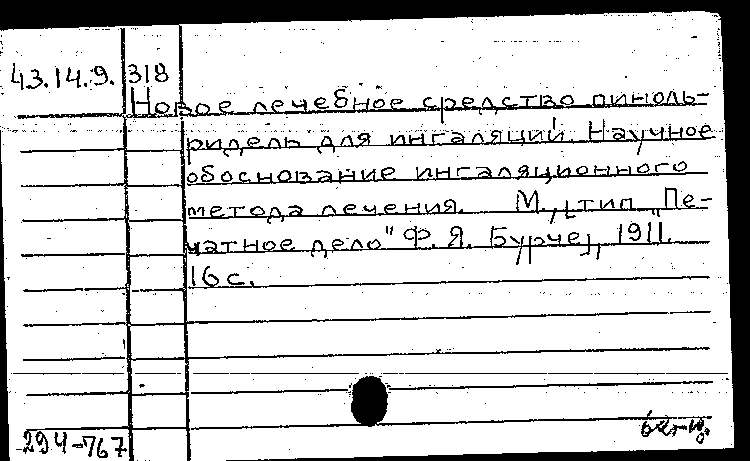 43.14.9. 318
Новое лечебное средство пиноль-
ридель для ингаляций. Научное
обоснование ингаляционного
метода лечения. М., [тип. "Пе-
чатное дело" Ф. Я. Бурче], 1911.
16 с.
294-767